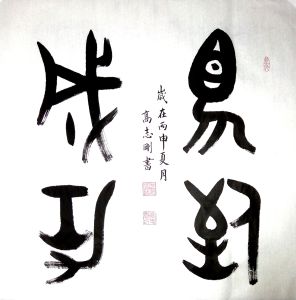 馬到
成功
歲在丙申夏月
高志剛書